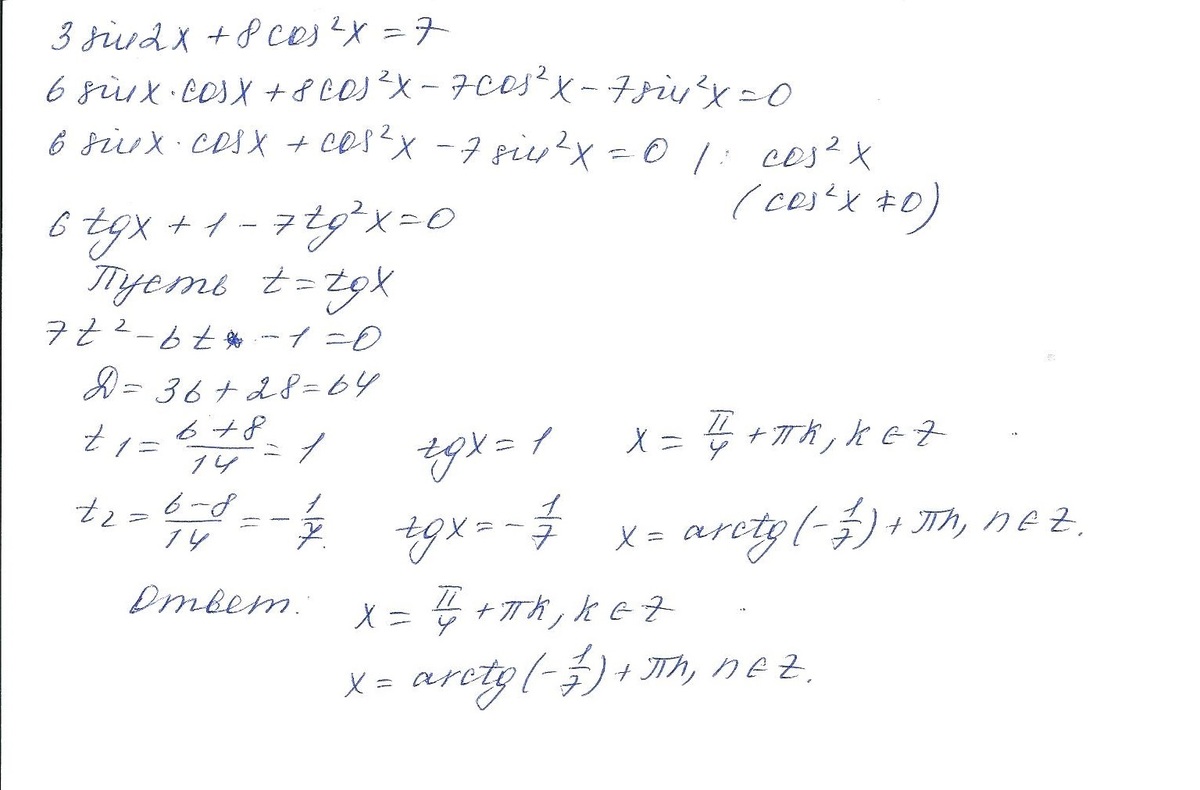 3 sin2x + 8cos²x = 7
6 sinx · cosx + 8cos²x − 7cos²x − 7sin²x = 0
6 sinx · cosx + cos²x − 7sin²x = 0 / : cos²x
(cos²x ≠ 0)
6 tgx + 1 − 7tg²x = 0
Пусть t = tgx
7t² − 6t − 1 = 0
D = 36 + 28 = 64
t₁ = (6+8)/14 = 1 tgx = 1 x = π/4 + πk, k ∈ Z
t₂ = (6−8)/14 = −1/7. tgx = −1/7 x = arctg(−1/7) + πn, n ∈ Z.
Ответ: x = π/4 + πk, k ∈ Z
x = arctg(−1/7) + πn, n ∈ Z.